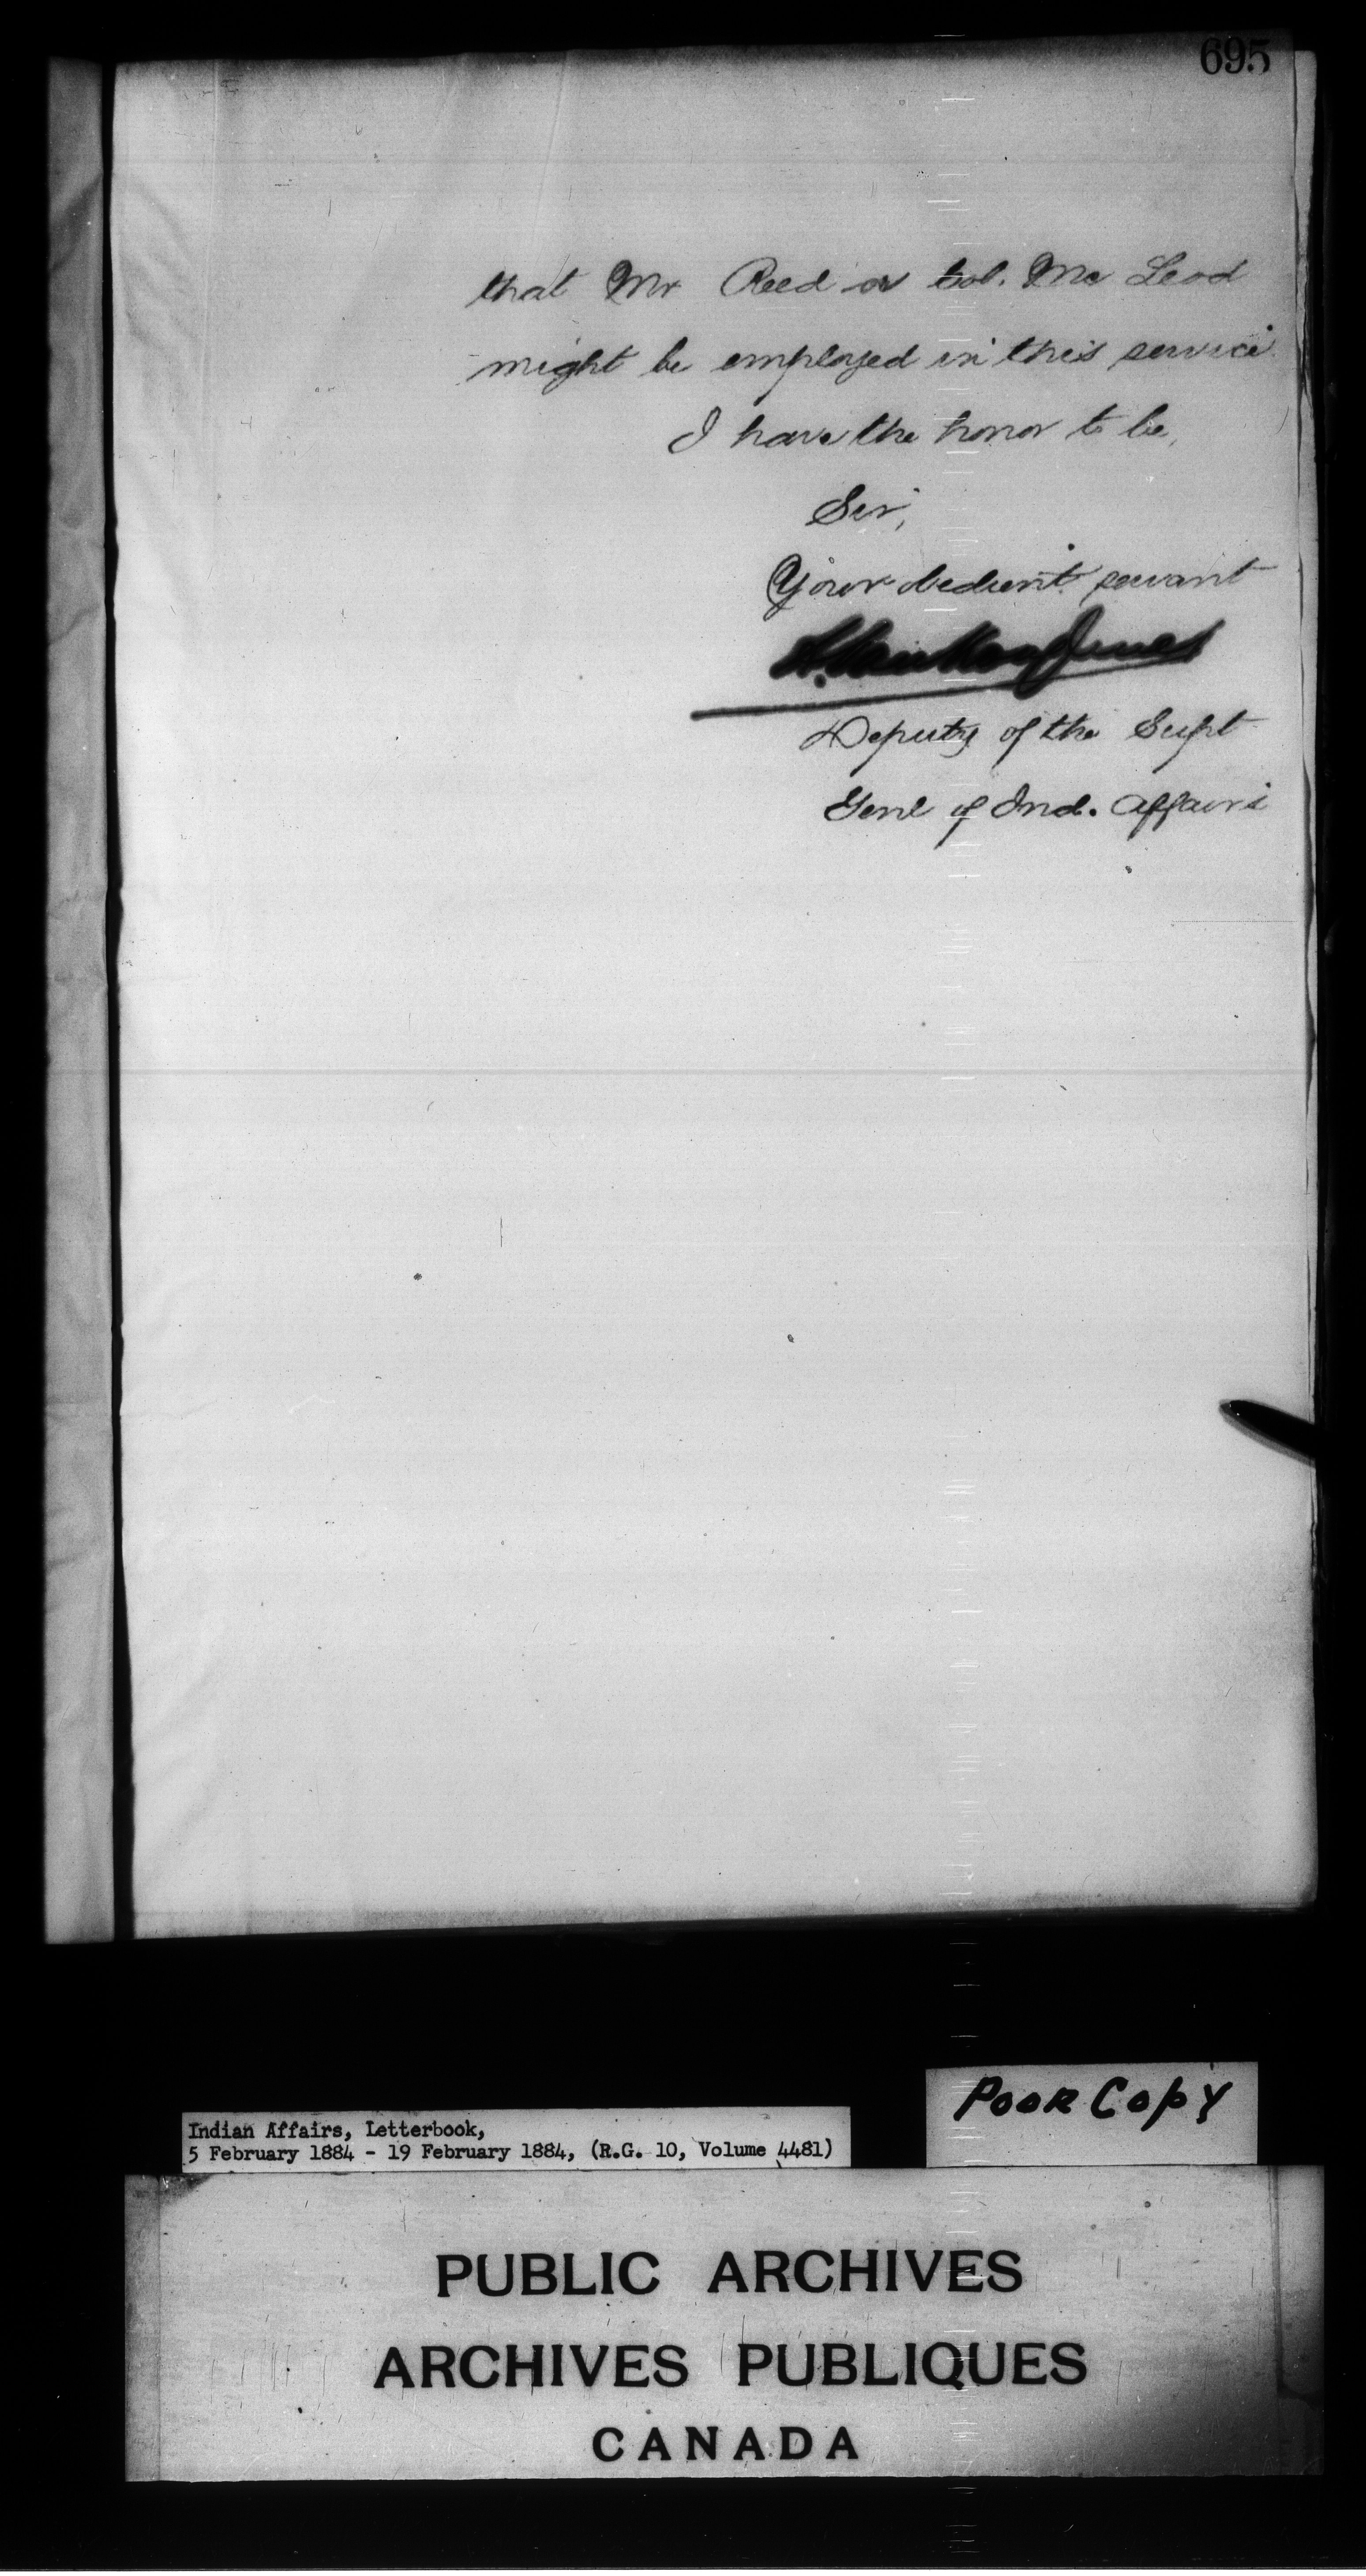 695
that Mr Reed or Col. Mc Leod
might be employed in this service.
I have the honor to be,
Sir,
Your obedient servant
Deputy of the Supt
Genl of Ind. Affairs
Poor Copy
Indian Affairs, Letterbook,
5 February 1884 - 19 February 1884, (R.G. 10, Volume 4481)
PUBLIC ARCHIVES
ARCHIVES PUBLIQUES
CANADA